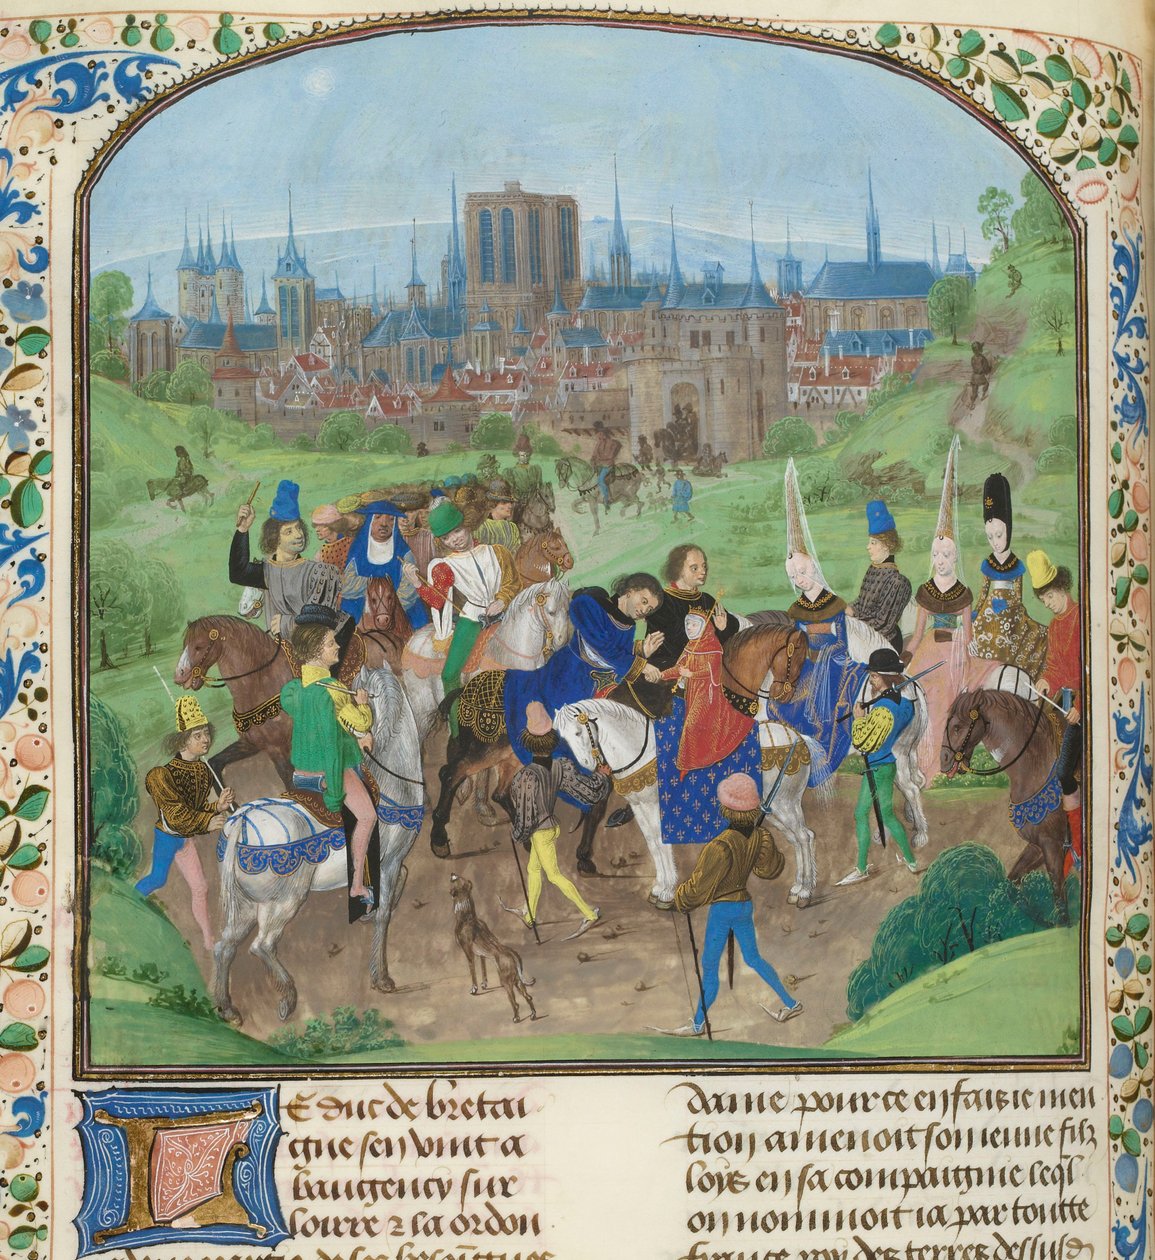 Le duc de bretai
gne sen vint a
baugency sur
loirre & la ordon
dame pour ce en fais ie men
tion amenoit son ieune filz
loys en sa compaignie leql
on nommoit ia par toutte